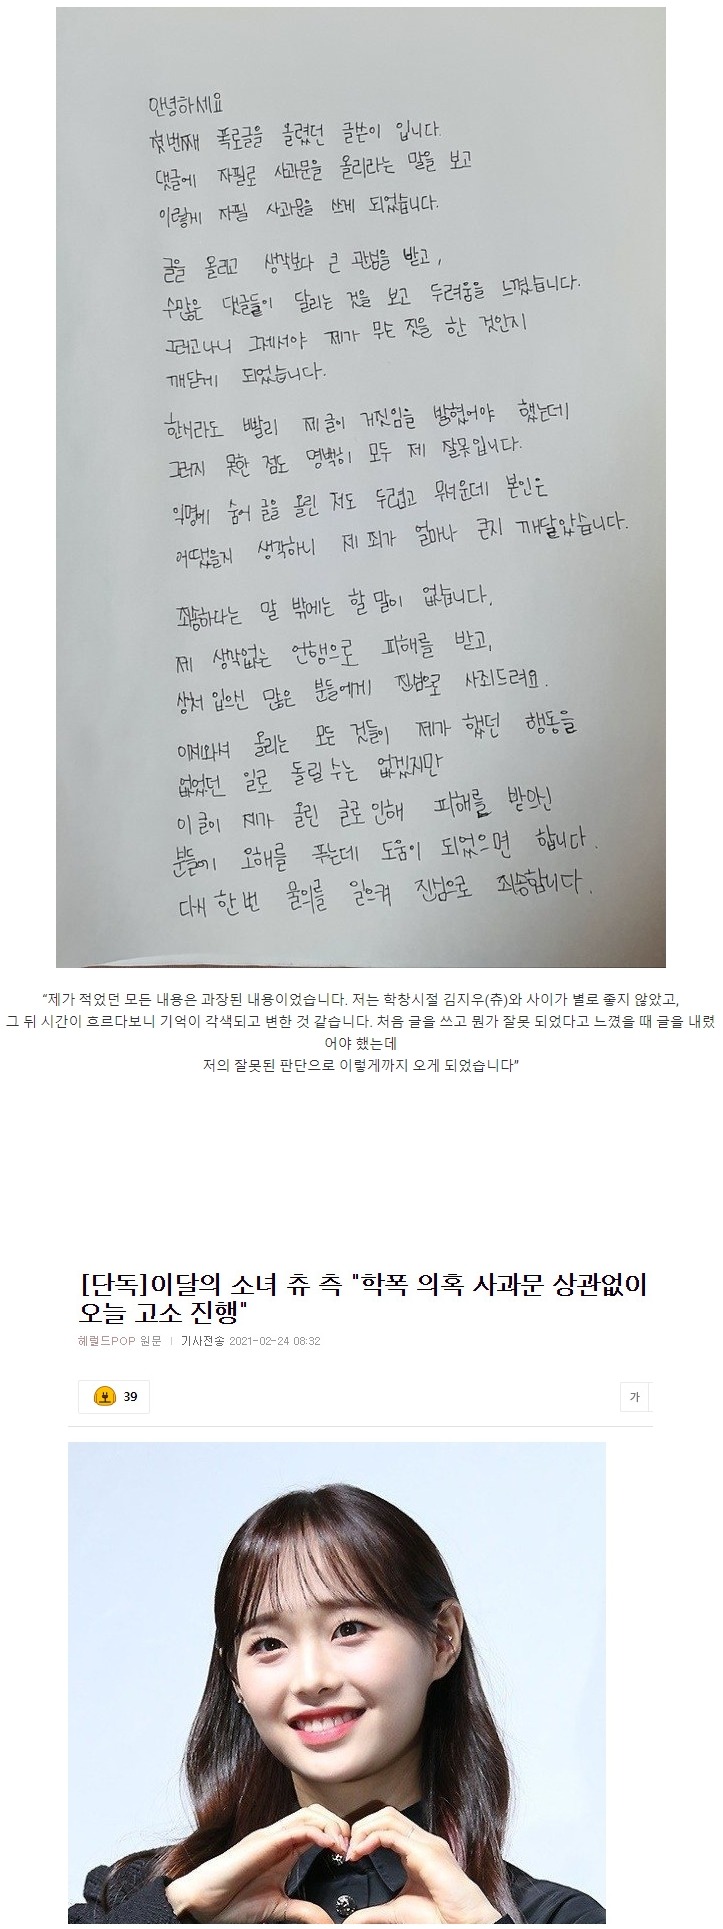 안녕하세요
첫번째 폭로글을 올렸던 글쓴이 입니다.
댓글에 자필로 사과문을 올리라는 말을 보고
이렇게 자필 사과문을 쓰게 되었습니다.
글을 올리고 생각보다 큰 관심을 받고,
수많은 댓글들이 달리는 것을 보고 두려움을 느꼈습니다.
그러고나니 그제서야 제가 무슨 짓을 한 것인지
깨닫게 되었습니다.
한시라도 빨리 제 글이 거짓임을 밝혔어야 했는데
그러지 못한 점도 명백히 모두 제 잘못입니다.
익명에 숨어 글을 올린 저도 두렵고 무서운데 본인은
어땠을지 생각하니 제 죄가 얼마나 큰지 깨달았습니다.
죄송하다는 말 밖에는 할 말이 없습니다.
제 생각없는 언행으로 피해를 받고,
상처 입으신 많은 분들에게 진심으로 사죄드려요.
이제와서 올리는 모든 것들이 제가 했던 행동을
없었던 일로 돌릴 수는 없겠지만
이 글이 제가 올린 글로 인해 피해를 받으신
분들에 오해를 푸는데 도움이 되었으면 합니다.
다시 한번 물의를 일으켜 진심으로 죄송합니다.
“제가 적었던 모든 내용은 과장된 내용이었습니다. 저는 학창시절 김지우(츄)와 사이가 별로 좋지 않았고,
그 뒤 시간이 흐르다보니 기억이 각색되고 변한 것 같습니다. 처음 글을 쓰고 뭔가 잘못 되었다고 느꼈을 때 글을 내렸
어야 했는데
저의 잘못된 판단으로 이렇게까지 오게 되었습니다”
[단독]이달의 소녀 츄 측 "학폭 의혹 사과문 상관없이
오늘 고소 진행"
헤럴드POP 원문 | 기사전송 2021-02-24 08:32
39
가